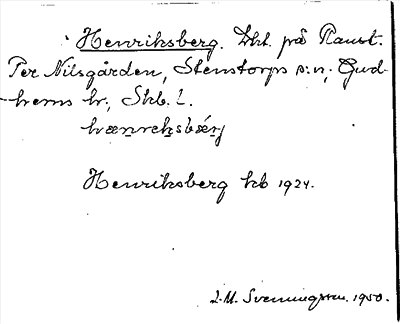 Henriksberg. Lht. påРанst.
Per Nilsgården, Stenstorps s:n, Gud-
hems hr, Skb. l.
hænreksbærj
Henriksberg kb 1924.
I.M. Svenningson. 1950.